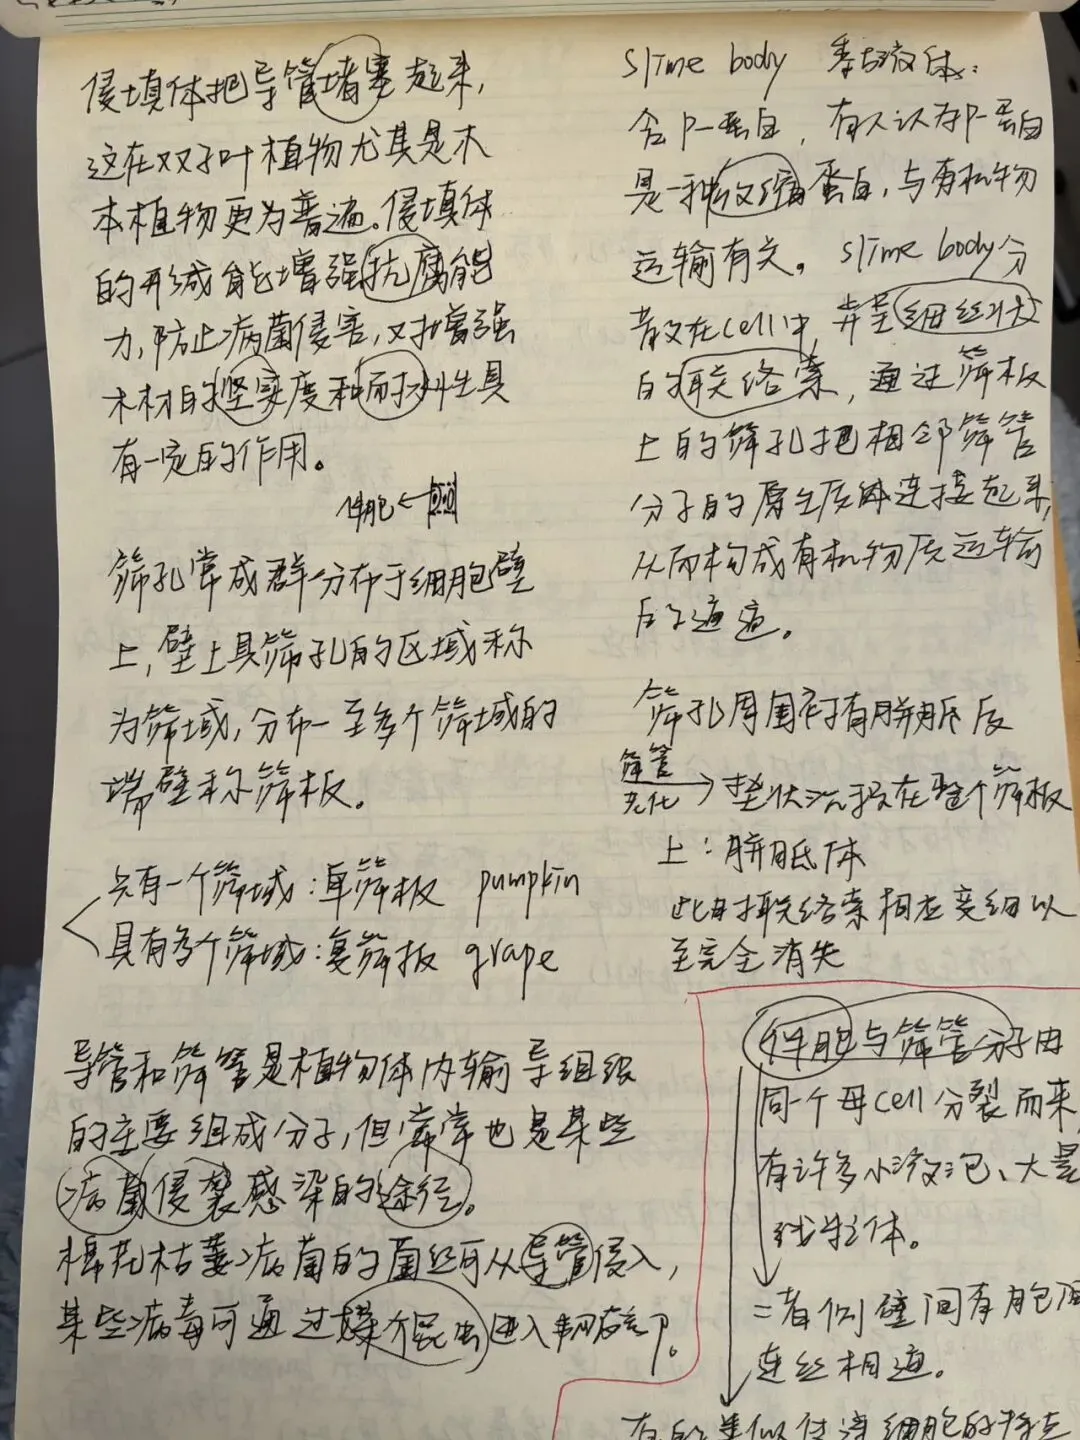 侵填体把导管堵塞起来,
这在双子叶植物尤其是木
本植物更为普遍。侵填体
的形成能增强抗腐能
力,防止病菌侵害,对增强
木材的坚实度和耐水性具
有一定的作用。
伴胞←
筛孔常成群分布于细胞壁
上,壁上具筛孔的区域称
为筛域,分布一至多个筛域的
端壁称筛板。
只有一个筛域:单筛板 pumpkin
具有多个筛域:复筛板 grape
导管和筛管是植物体内输导组织
的主要组成分子,但常常也是某些
病菌侵袭感染的途径。
棉花枯萎病菌的菌丝可从导管侵入,
某些病毒可通过媒介昆虫进入韧皮部。
slime body 黏液体:
含P-蛋白,有人认为P-蛋白
是一种收缩蛋白,与有机物
运输有关。slime body分
散在cell中,并呈细丝状
的联络索,通过筛板
上的筛孔把相邻筛管
分子的原生质体连接起来,
从而构成有机物质运输
的通道。
筛孔周围衬有胼胝质
筛管
老化→垫状沉积在整个筛板
上:胼胝体
此时联络索相应变细以
至完全消失
伴胞与筛管分子由
同一个母cell分裂而来,
有许多小液泡、大量
线粒体。
二者侧壁间有胞间
连丝相通。
有的类似传递细胞的特点